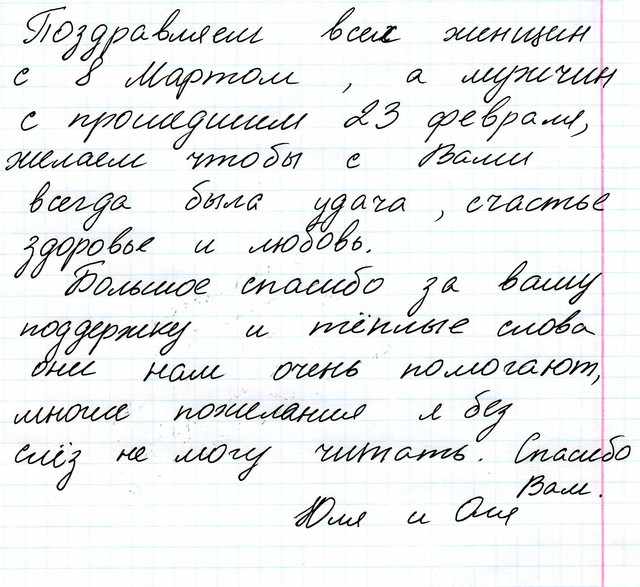 Поздравляем всех женщин
с 8 Мартом, а мужчин
с прошедшим 23 февраля,
желаем чтобы с Вами
всегда была удача, счастье
здоровье и любовь.
Большое спасибо за вашу
поддержку и тёплые слова
они нам очень помогают,
многие пожелания я без
слёз не могу читать. Спасибо
Вам.
Юля и Оля